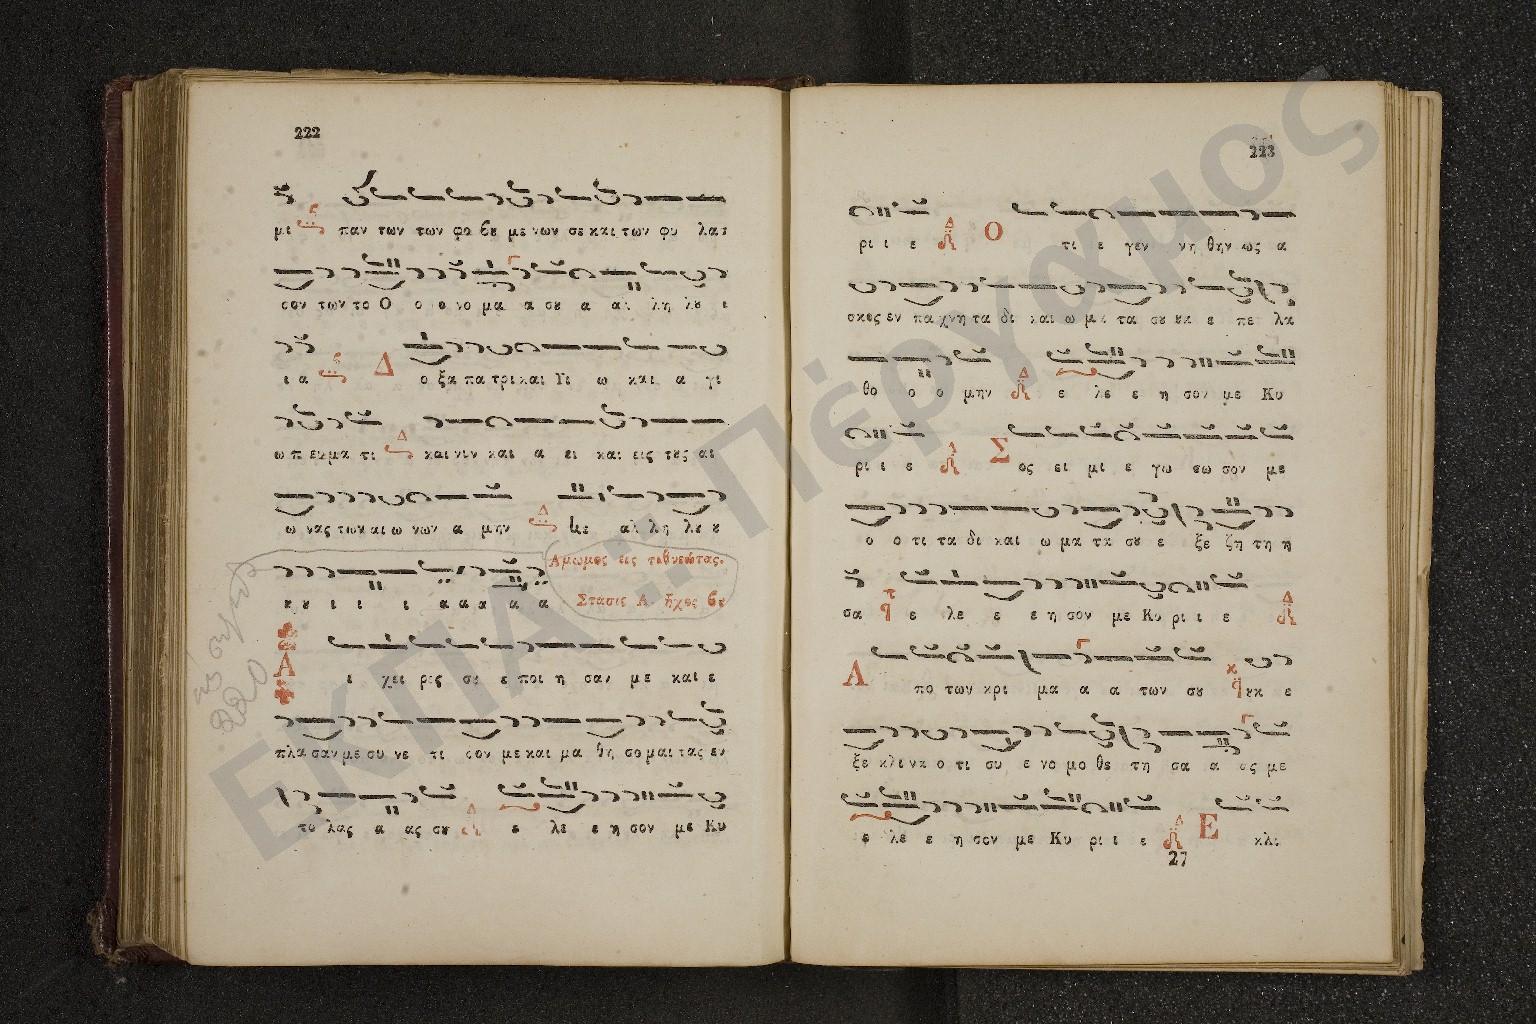 222
μι παν των των φο βου με νων σε και των φυ λασ
σον των το Ο ο ο νο μα α σου α αλ λη λου ι
ι α Δ ο ξα πα τρι και Υι ω και α γι
ω π ευμα τι και νιν και α ει και εις τους αι
ω νας των αι ω νων α μην με αλ λη λου ου
Αμωμος εις τεθνεώτας.
κυ ι ι ι α α α α α Στασις Α ἦχος βου
Α ι χει ρες σου ε ποι η σαν με και ε
πλα σαν με συ νε τι σον με και μα θη σο μαι τας εν
το λας α ας σου ε λε ε η σον με Κυ
220
223
ρι ι ε Ο τι ε γεν νη θην ως α
σκος εν πα χνη τα δι και ω μα τα σου ουκ ε πε λα
θο ο ο μην ε λε ε η σον με Κυ
ρι ι ε Σ ος ει μι ε γω σω σον με
ο ο τι τα δι και ω μα τα σου ε ξε ζη τη η
σα ε λε ε ε η σον με Κυ ρι ι ε
Α πο των κρι μα α α των σου ουκ ε
ξε κλι να ο τι συ ε νο μο θε τη σα α ας με
ε λε ε η σον με Κυ ρι ι ε Ε κλι
27
ΕΚΠΑ: Πέργαμος